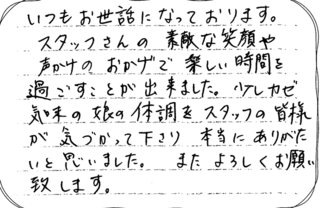 いつもお世話になっております。
スタッフさんの 素敵な笑顔や
声かけの おかげで 楽しい時間を
過ごすことが出来ました。少しカゼ
気味の娘の体調をスタッフの皆様
が 気づかって下さり 本当に ありがた
いと思いました。 また よろしくお願い
致します。